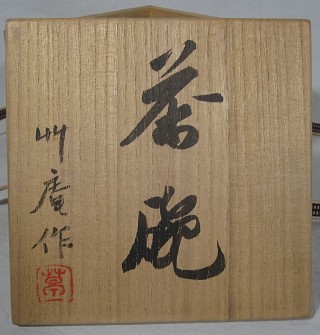 茶碗
艸庵作